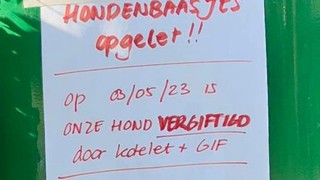 HONDENBAASJES
opgelet!!
op 03/05/23 is
ONZE HOND VERGIFTIGD
door kotelet + GIF